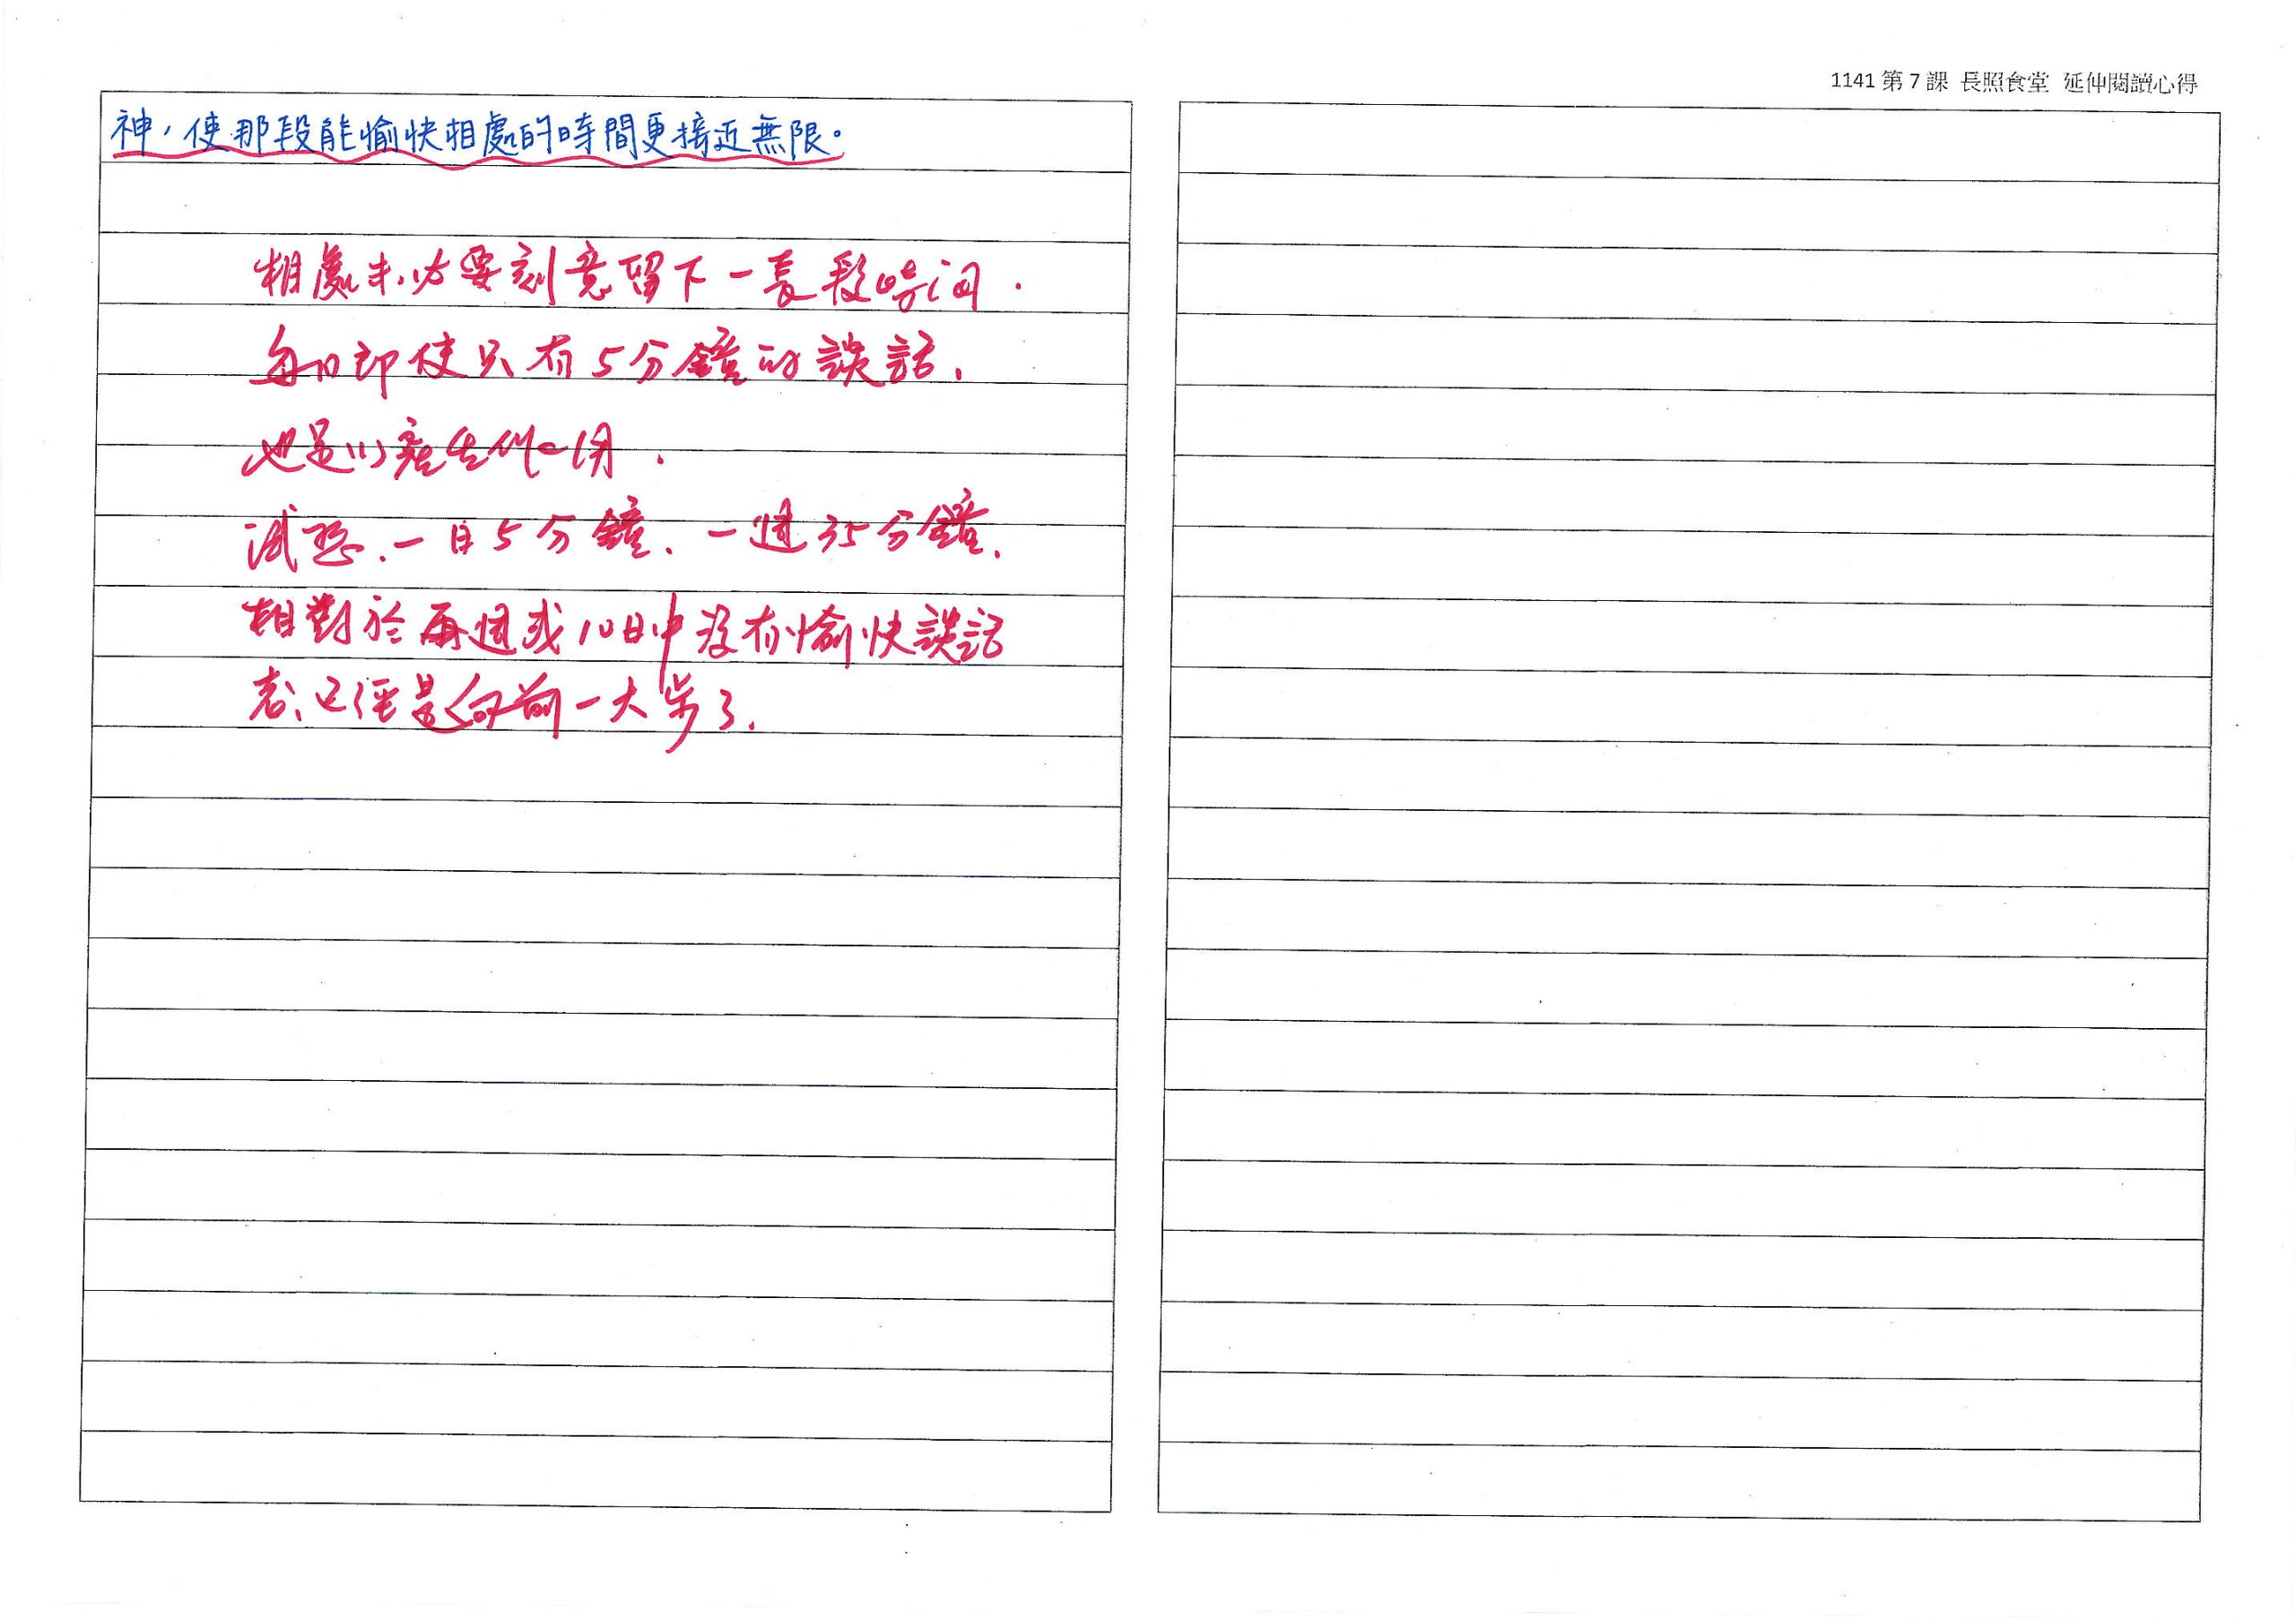 1141 第 7 課 長照食堂 延伸閱讀心得
神，使那段能愉快相處的時間更接近無限。
相處未必要刻意留下一長段時间.
每日即使只有5分鐘的談話,
也足以產生作用.
試想.一日5分鐘、一週35分鐘,
相對於每週或10日中沒有愉快談話
者,已經是向前一大步了.